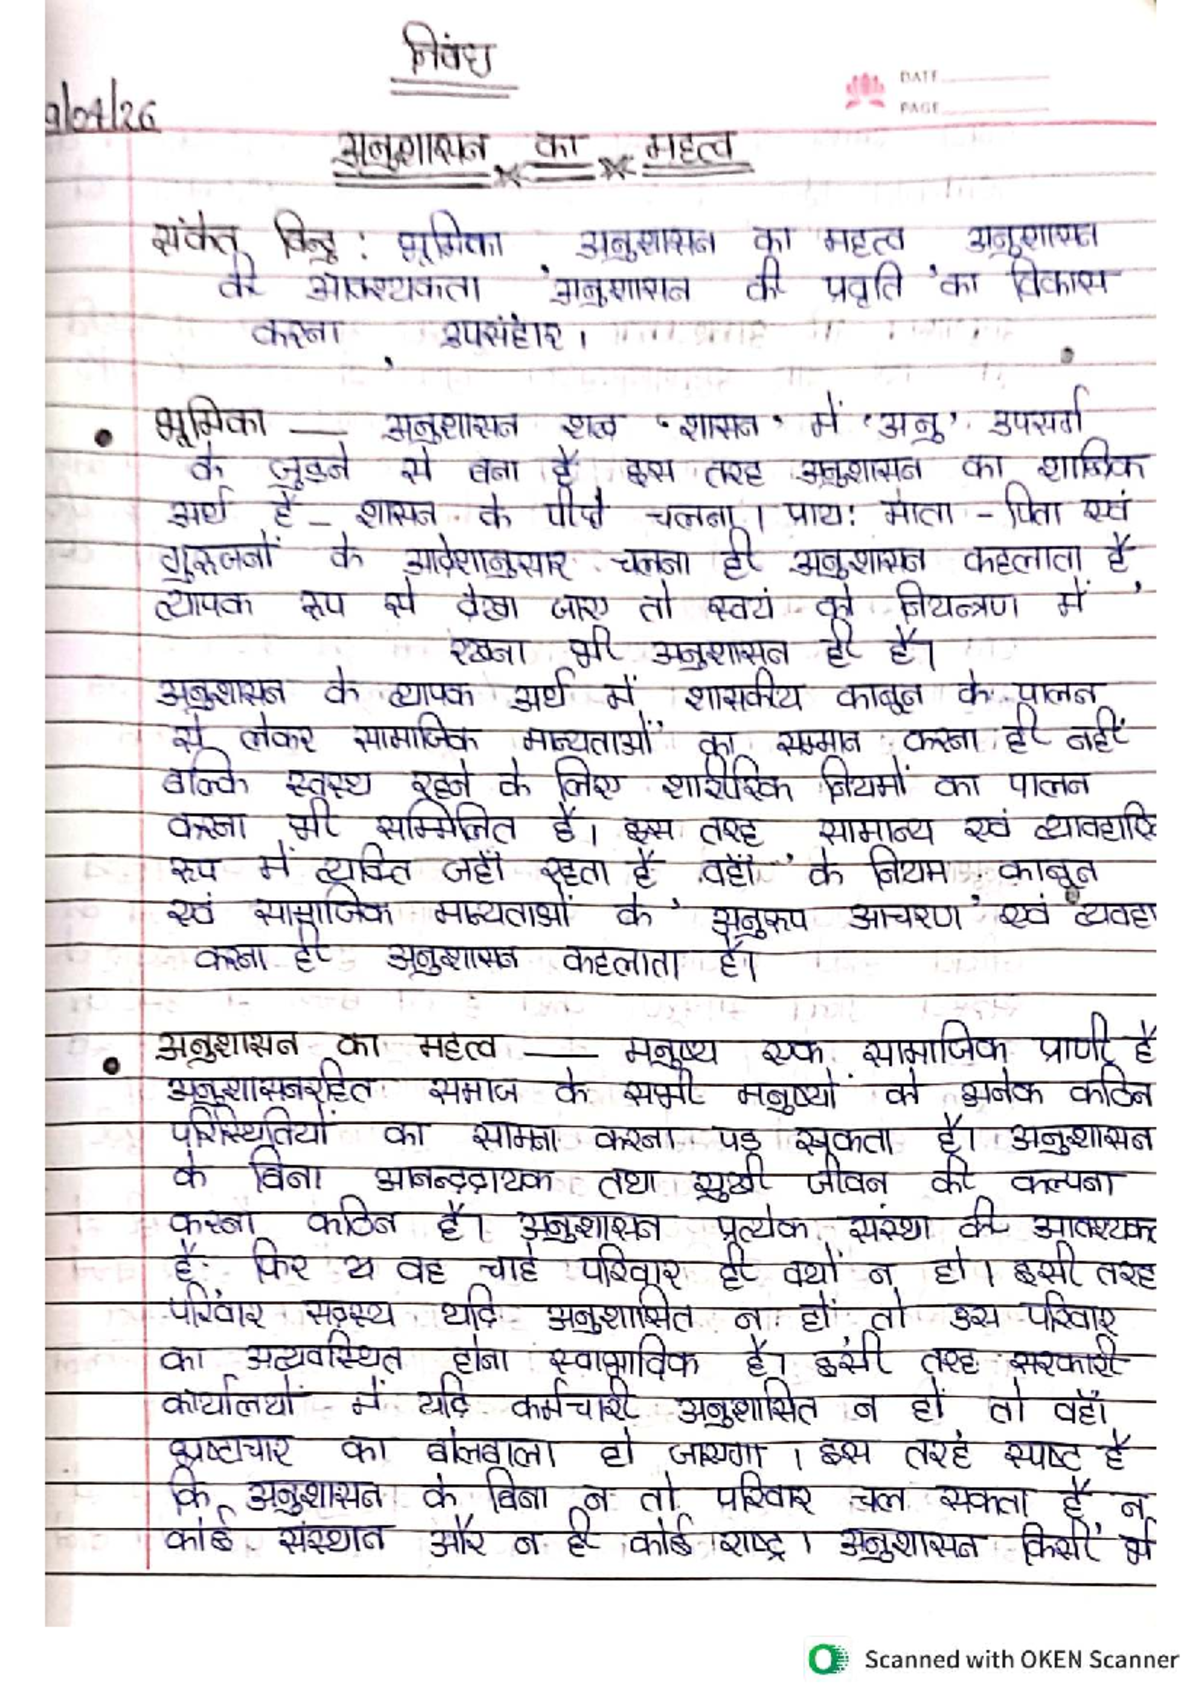 निबंध
DATE
PAGE
9/04/26
अनुशासन का महत्व
संकेत बिन्दु : भूमिका, अनुशासन का महत्व अनुशासन
की आवश्यकता, अनुशासन की प्रवृति का विकास
करना, उपसंहार।
भूमिका — अनुशासन शब्द 'शासन' में 'अनु' उपसर्ग
के जुडने से बना है इस तरह अनुशासन का शाब्दिक
अर्थ है – शासन के पीछे चलना। प्राय: माता - पिता एवं
गुरुजनों के आदेशानुसार चलना ही अनुशासन कहलाता है,
व्यापक रूप से देखा जाए तो स्वयं को नियन्त्रण में
रखना भी अनुशासन ही है।
अनुशासन के व्यापक अर्थ में शासकीय कानून के पालन
से लेकर सामाजिक मान्यताओं का सम्मान करना ही नहीं
बल्कि स्वस्थ रहने के लिए शारीरिक नियमों का पालन
करना भी सम्मिलित है। इस तरह सामान्य एवं व्यावहारि
रूप में व्यक्ति जहाँ रहता है वहाँ के नियम, कानून
एवं सामाजिक मान्यताओं के अनुरूप आचरण एवं व्यवहा
करना ही अनुशासन कहलाता है।
अनुशासन का महत्व — मनुष्य एक सामाजिक प्राणी है
अनुशासनरहित समाज के सभी मनुष्यों को अनेक कठिन
परिस्थितियों का सामना करना पड़ सकता है। अनुशासन
के बिना आनन्ददायक तथा सुखी जीवन की कल्पना
करना कठिन है। अनुशासन प्रत्येक संस्था की आवश्यक
है फिर वह चाहे परिवार ही क्यों न हो। इसी तरह
परिवार सदस्य यदि अनुशासित न हों, तो उस परिवार
का अव्यवस्थित होना स्वाभाविक है। इसी तरह सरकारी
कार्यालयों में यदि कर्मचारी अनुशासित न हों तो वहाँ
भ्रष्टाचार का बोलबाला हो जाएगा। इस तरह स्पष्ट है
कि अनुशासन के बिना न तो परिवार चल सकता है न
कोई संस्थान और न ही कोई राष्ट्र। अनुशासन किसी भ
Scanned with OKEN Scanner